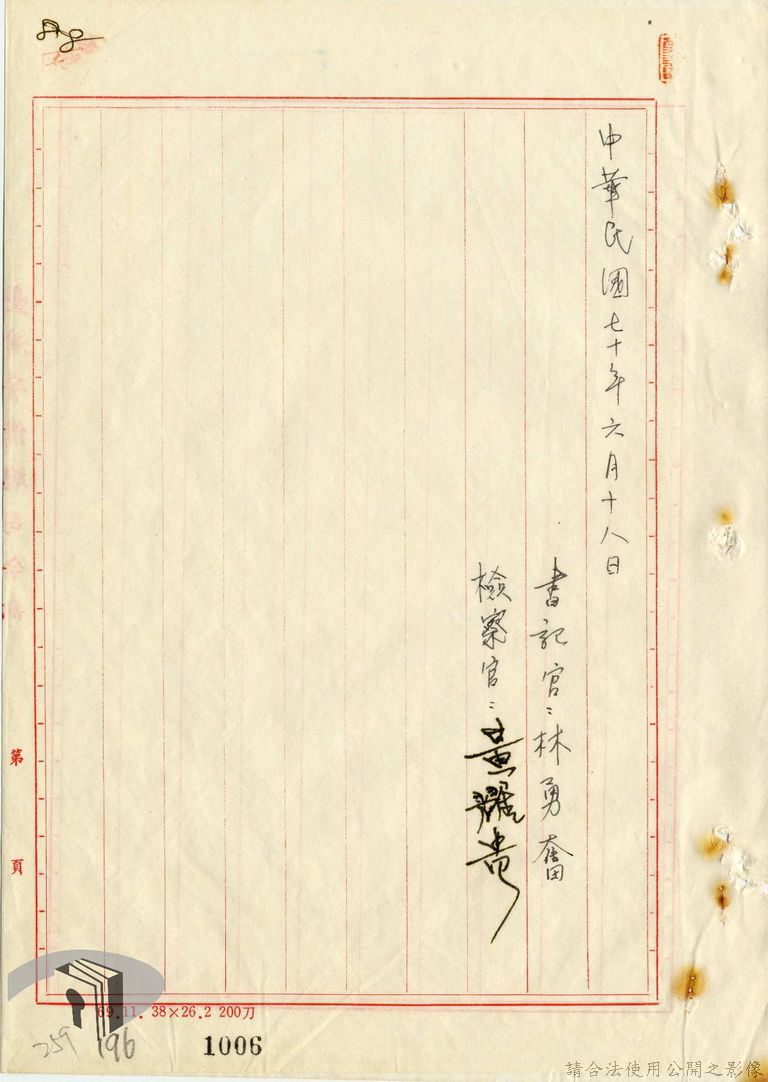 中華民國七十年六月十八日
書記官：林勇奮
檢察官：黃耀貴
第 頁
69.11. 38×26.2 200刀
259 196 1006
請合法使用公開之影像